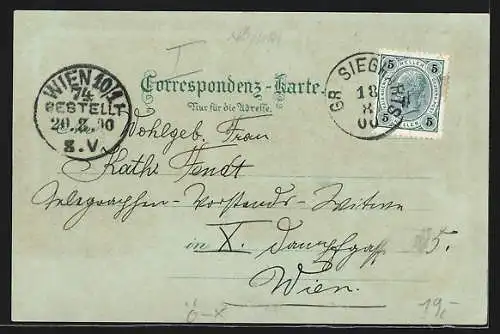 I
Correspondenz-Karte.
Nur für die Adresse.
5 HELLER 5
5 5
GR SIEGHARTS
18
8
00
WIEN 10/1
74
BESTELLT
20.8.00
8.V
Wohlgeb. Frau
Kathi Fendt
Telegraphen-Vorstands-Witwe
in X. Dampfgasse 5.
Wien.
Ö-X
19,-